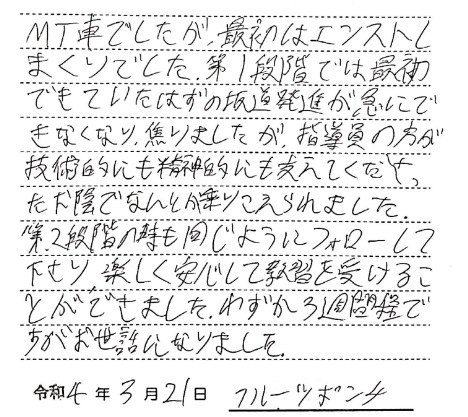 MT車でしたが、最初はエンストし
まくりでした。第1段階では最初
できていたはずの坂道発進が急にで
きなくなり、焦りましたが、指導員の方が
技術的にも精神的にも支えてくださっ
たお陰でなんとか乗りこえられました。
第2段階の時も同じようにフォローして
下さり、楽しく安心して教習を受けるこ
とができました。わずか3週間程で
すがお世話になりました。
令和4年3月21日 フルーツポンチ